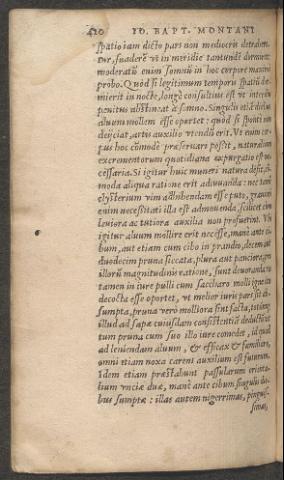 420 IO. BAPT. MONTANI
spatio iam dicto pars non mediocris
tur, suaderē vt in meridie tantundē dormiret:
moderatū enim somnū in hoc corpore maximè
probo. Quòd si legitimum temporis spatiū dor
mierit in nocte, longè consultius est vt interdiu
penitus abstineat à somno. Singulis etiā diebus
aluum mollem esse oportet: quòd si sponte nō
deijciat, artis auxilio vtendū erit. Vt enim cor
pus hoc cōmodè præseruari possit, naturalium
excrementorum quotidiana expurgatio est ne
cessaria. Si igitur huic muneri natura desit,
moda aliqua ratione erit adiuuanda: nec tamen
clysterium vim adhibendam esse puto, quum
enim necessitati illa est admouenda, scilicet cùm
leuiora ac tutiora auxilia non profuerint. Vt
igitur aluum mollire erit necesse, manè ante ci
bum, aut etiam cum cibo in prandio, decem aut
duodecim pruna siccata, plura aut pauciora, pro
illorū magnitudinis ratione, sunt deuoranda:
tamen in iure pulli cum saccharo molli igne
decocta esse oportet, vt melior iuris pars sit
sumpta, pruna verò molliora sint facta, totūque
illud ad sapæ cuiusdam consistentiā deductum
tum pruna cum suo illo iure comedet, id quod
ad leniendam aluum, & efficax & familiare,
omni etiam noxa carens auxilium est futurum.
Idem etiam præstabunt passularum corintia
bium vnciæ duæ, manè ante cibum singulis die
bus sumptæ: illas autem nigerrimas, pinguis-
simas,